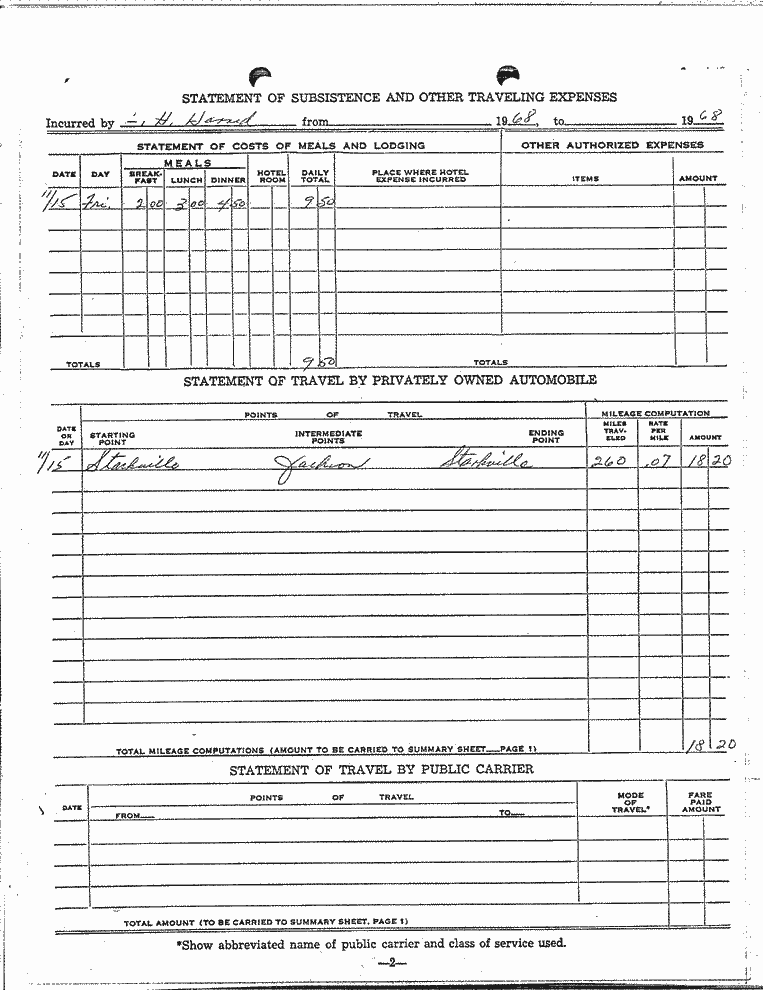 STATEMENT OF SUBSISTENCE AND OTHER TRAVELING EXPENSES
Incurred by H. from 1968, to 1968
STATEMENT OF COSTS OF MEALS AND LODGING OTHER AUTHORIZED EXPENSES
DATE DAY MEALS BREAK-FAST LUNCH DINNER HOTEL ROOM DAILY TOTAL PLACE WHERE HOTEL EXPENSE INCURRED ITEMS AMOUNT
11/15 Fri. 2 00 3 00 4 50 9 50
TOTALS 9 50 TOTALS
STATEMENT OF TRAVEL BY PRIVATELY OWNED AUTOMOBILE
POINTS OF TRAVEL MILEAGE COMPUTATION
DATE OR DAY STARTING POINT INTERMEDIATE POINTS ENDING POINT MILES TRAV-ELED RATE PER MILE AMOUNT
11/15 Starkville Jackson Starkville 260 .07 18 20
TOTAL MILEAGE COMPUTATIONS (AMOUNT TO BE CARRIED TO SUMMARY SHEET—PAGE 1) 18 20
STATEMENT OF TRAVEL BY PUBLIC CARRIER
DATE POINTS OF TRAVEL MODE OF TRAVEL* FARE PAID AMOUNT
FROM— TO—
TOTAL AMOUNT (TO BE CARRIED TO SUMMARY SHEET, PAGE 1)
*Show abbreviated name of public carrier and class of service used.
—2—